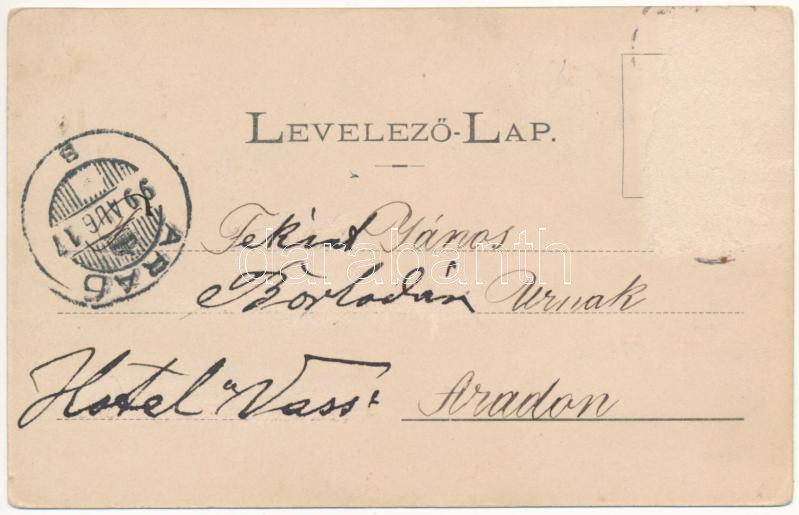 LEVELEZŐ-LAP.
ARAD
99 AUG 17
S
Tekint János
Borladán Urnak
Hotel "Vass"
Aradon
darabanth